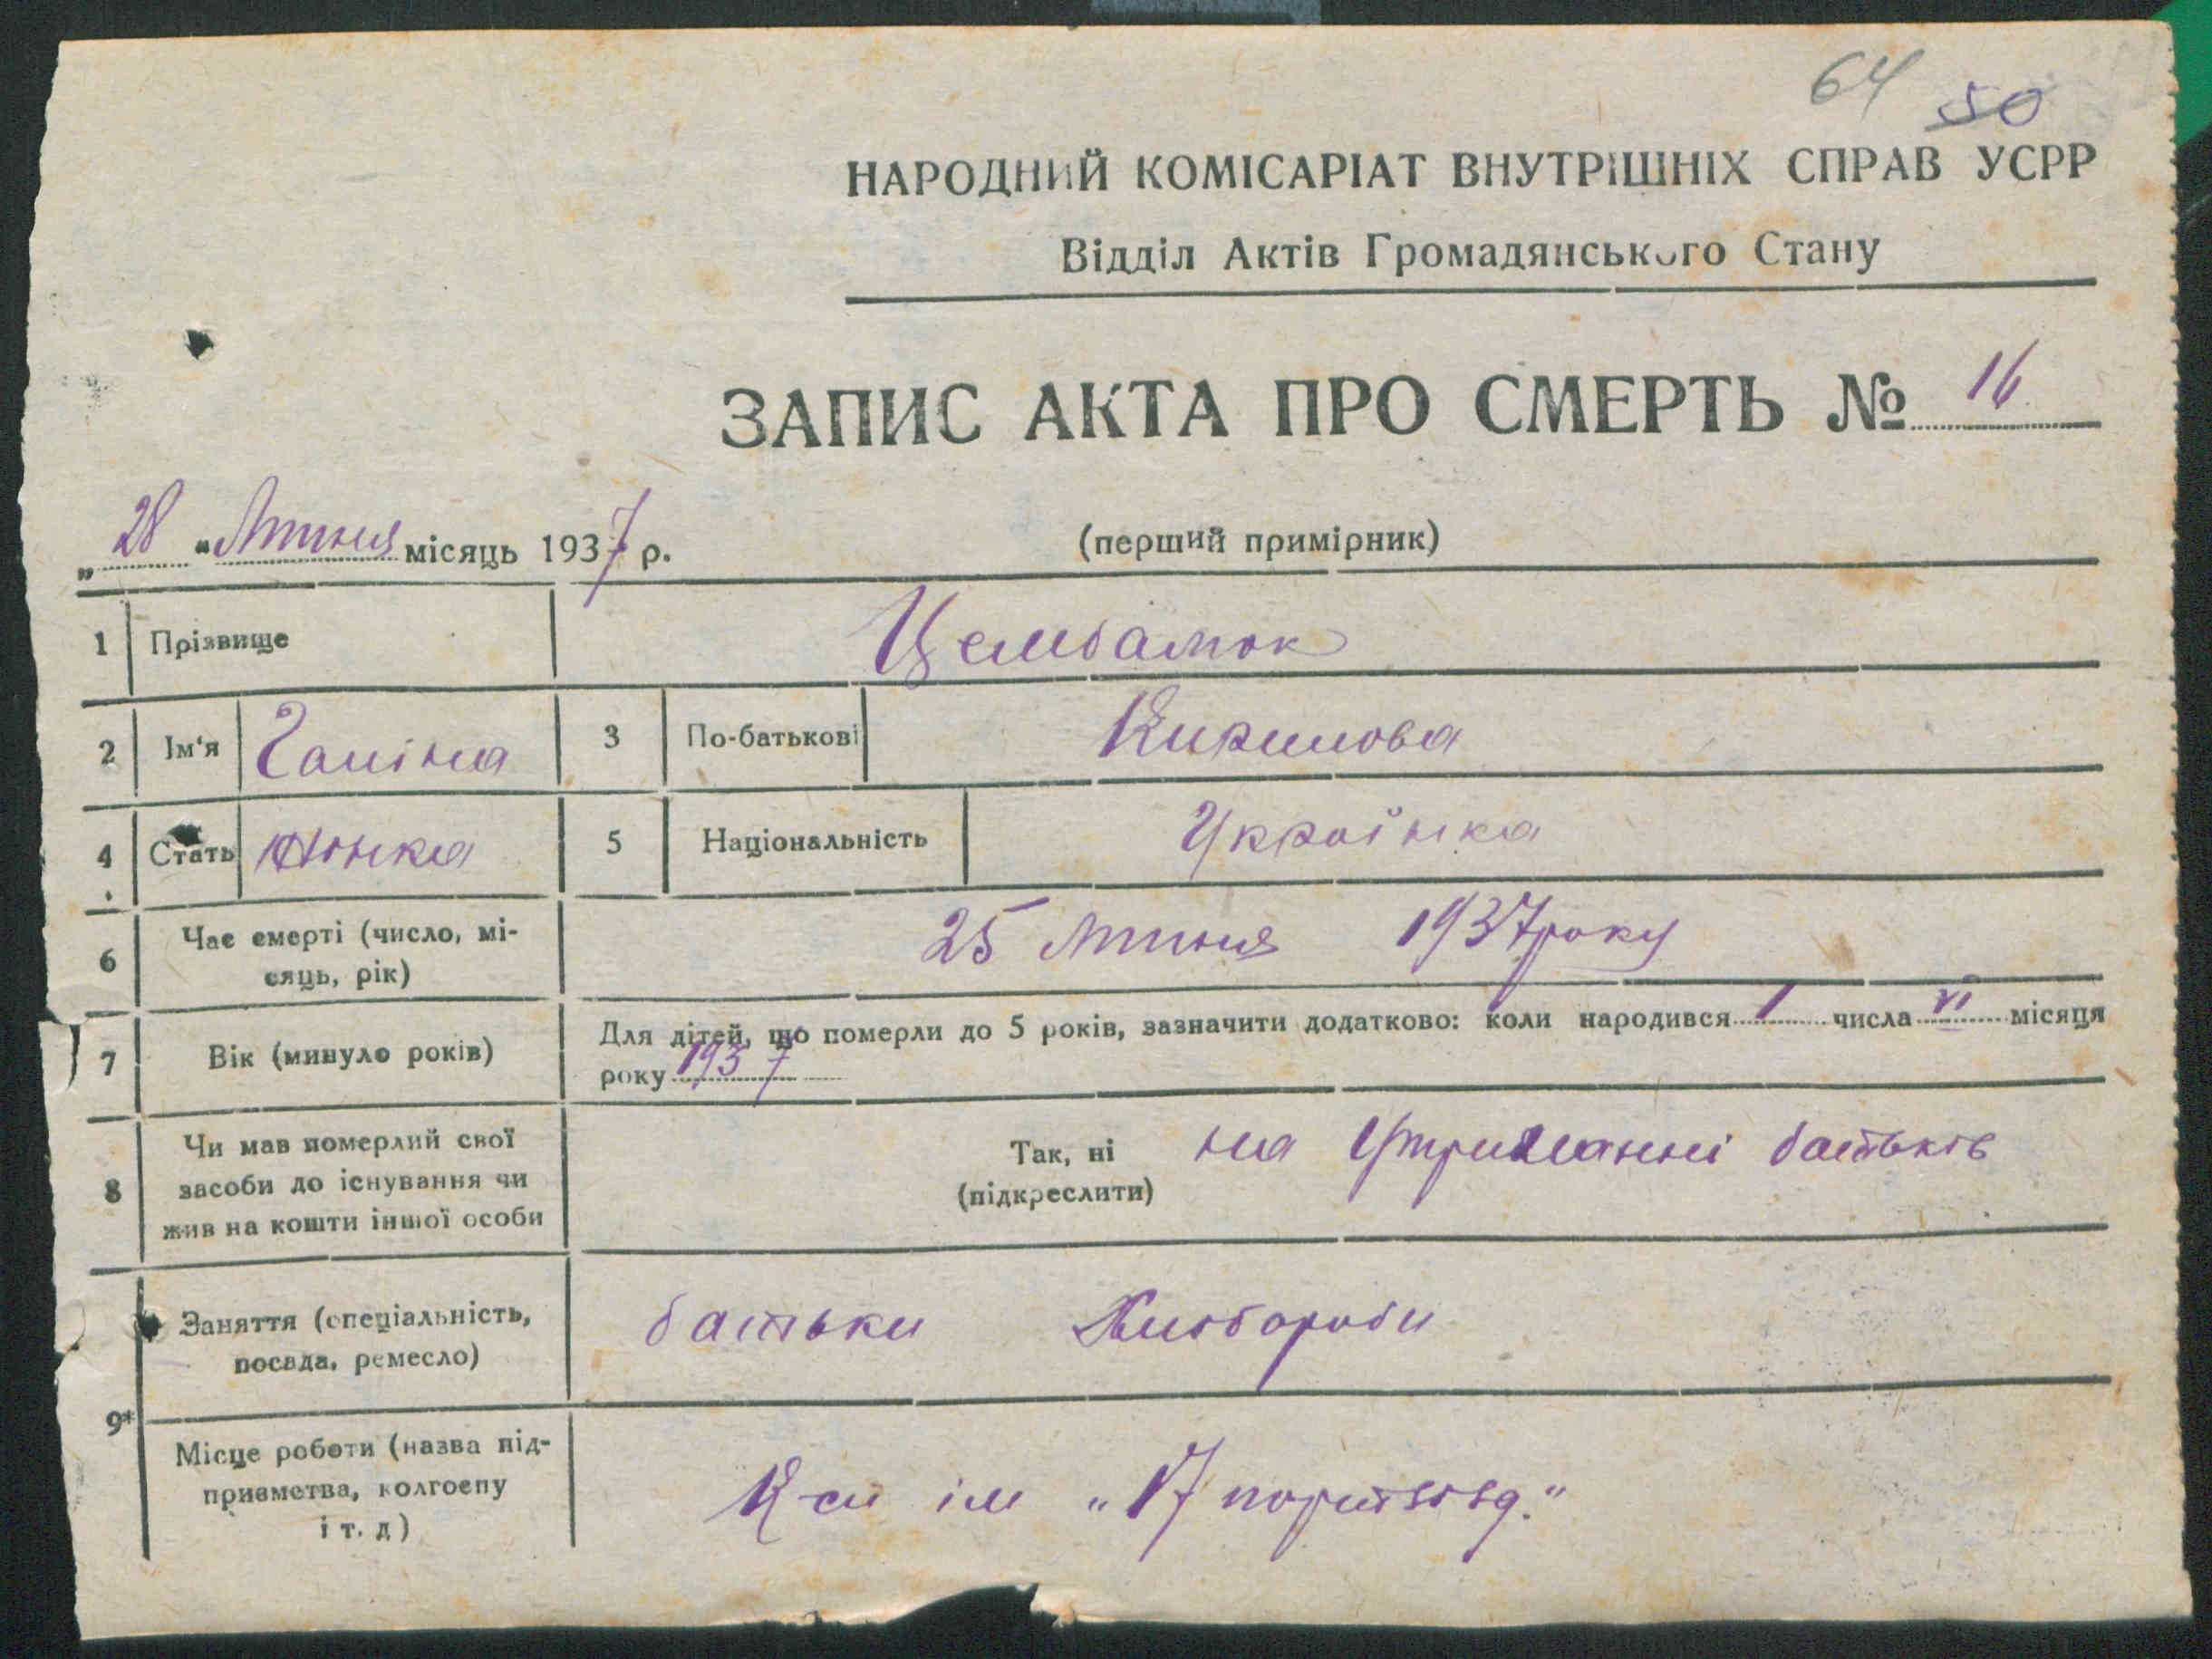 64 50
НАРОДНИЙ КОМІСАРІАТ ВНУТРІШНІХ СПРАВ УСРР
Відділ Актів Громадянського Стану
ЗАПИС АКТА ПРО СМЕРТЬ № 16
„28“ Липня місяць 1937 р. (перший примірник)
1 Прізвище Цембалюк
2 Ім'я Галіна 3 По-батькові Кирилова
4 Стать жінка 5 Національність Українка
6 Час смерті (число, мі-
сяць, рік) 25 липня 1937 року
7 Вік (минуло років) Для дітей, що померли до 5 років, зазначити додатково: коли народився 1 числа VI місяця
року 1937
8 Чи мав померлий свої
засоби до існування чи
жив на кошти іншої особи
Так, ні
(підкреслити) на Утриманні батьків
Заняття (спеціальність,
посада, ремесло) батьки Хлібороби
9*
Місце роботи (назва під-
приємства, колгоспу
і т. д) К-сп ім „17 партзїзд."